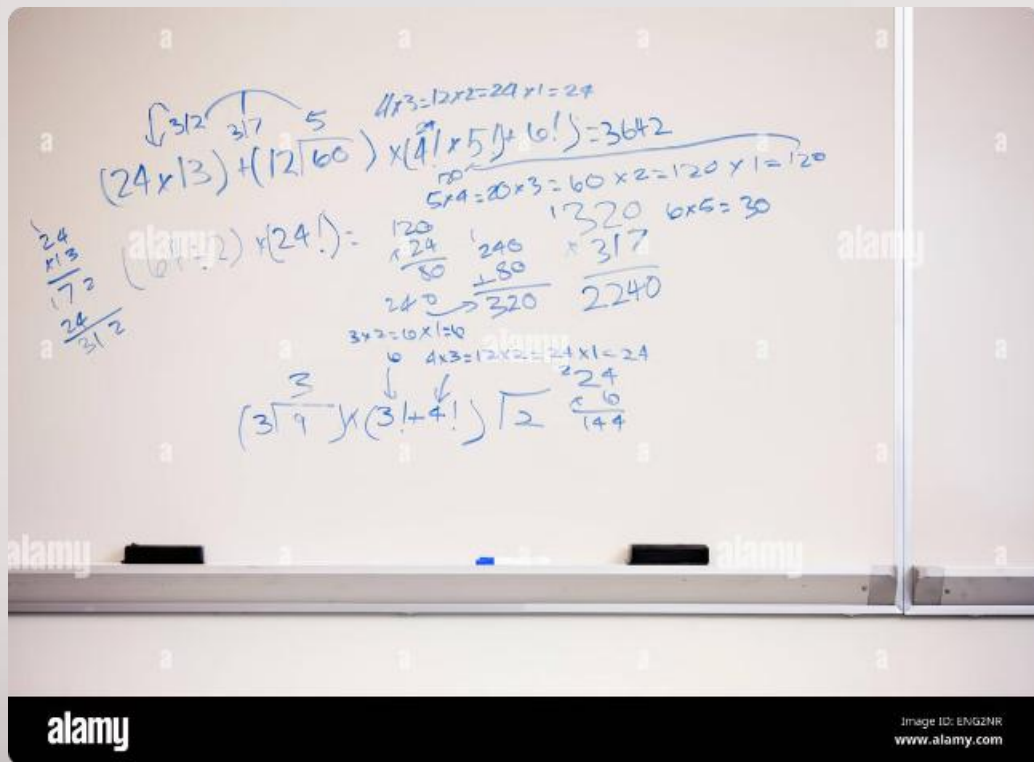 4x3=12x2=24x1=24
312 317 5
(24x13)+(12√60)x(4!x5!)+6!)=3642
24 120
5x4=20x3=60x2=120x1=120
6x5=30
1
24
x13
172
24
312
2)x(24!)=
120
x24
80
240
1
240
+80
320
1320
x317
2240
3x2=6x1=6
6 4x3=12x2=24x1=24
3
(3√9)x(3!+4!)√2
2
24
x6
144
alamy
Image ID: ENG2NR
www.alamy.com